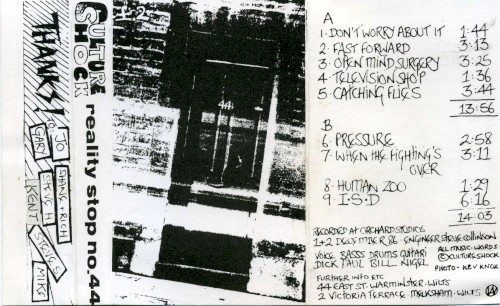 THANKS!
TO
JO
SHANE + RICH
GARY
STEVE H
STEVE S
MIKE
KENT
CULTURE
SHOCK
reality stop no.44
44
A
1. DON'T WORRY ABOUT IT 1:44
2. FAST FORWARD 3:13
3. OPEN MIND SURGERY 3:25
4. TELEVISION SHOP 1:36
5. CATCHING FLIES 3:44
13:56
B
6. PRESSURE 2:58
7. WHEN THE FIGHTING'S OVER 3:11
8. HUMAN ZOO 1:29
9. I.S.D 6:16
14:03
RECORDED AT ORCHARD STUDIOS
1+2 DECEMBER 86 ENGINEER STEVE COLLINSON
VOICE BASSS DRUMS GUITAR
DICK PAUL BILL NIGEL
ALL MUSIC. WORDS
© CULTURE SHOCK
PHOTO - KEV KNOX
FURTHER INFO ETC
44 EAST ST. WARMINSTER. WILTS
2 VICTORIA TERRACE MELKSHAM. WILTS